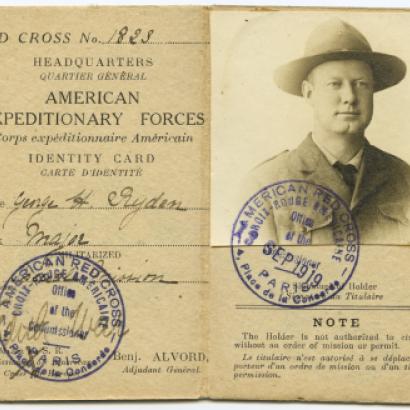 D CROSS No. 1823
HEADQUARTERS
QUARTIER GÉNÉRAL
AMERICAN
XPEDITIONARY FORCES
Corps expéditionnaire Américain
IDENTITY CARD
CARTE D'IDENTITÉ
George H. Ryden
Major
MILITARIZED
AMERICAN RED CROSS
CROIX-ROUGE AMÉRICAINE
Office
of the
Commissioner
PARIS
4, Place de la Concorde
Benj. ALVORD,
Adjudant Général.
AMERICAN RED CROSS
CROIX-ROUGE AMÉRICAINE
Office
of the
SEP 1919
PARIS
4, Place de la Concorde
Holder
Titulaire
NOTE
The Holder is not authorized to cir
without an order of mission or permit.
Le titulaire n'est autorisé à se déplac
porteur d'un ordre de mission ou d'un ti
permission.